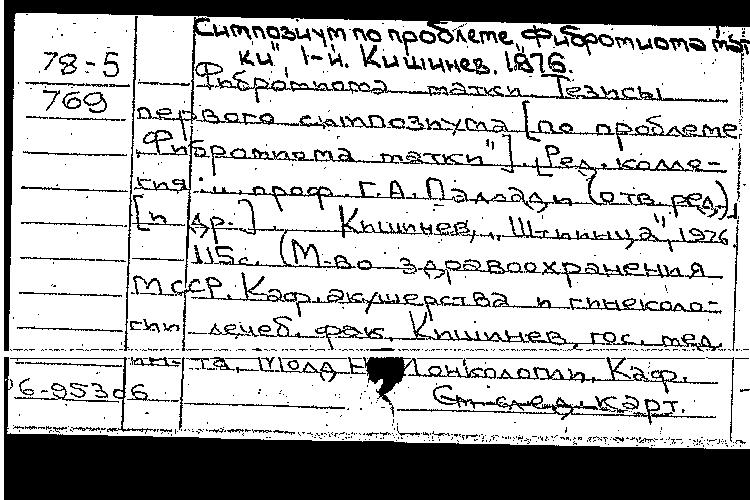 Симпозиум по проблеме „Фибромиома мат
ки", 1-й. Кишинев. 1976.
78-5
Фибромиома матки. Тезисы
769
первого симпозиума [по проблеме
„Фибромиома матки"]. [Ред. колле-
гия: ... проф. Г.А. Палади (отв. ред.)
[и др.]. Кишинев, „Штиинца", 1976.
115с. (М-во здравоохранения
МССР. Каф. акушерства и гинеколо-
гии лечеб. фак. Кишинев. гос. мед.
ин-та, Молд. онкологии, Каф.
См. след. карт.